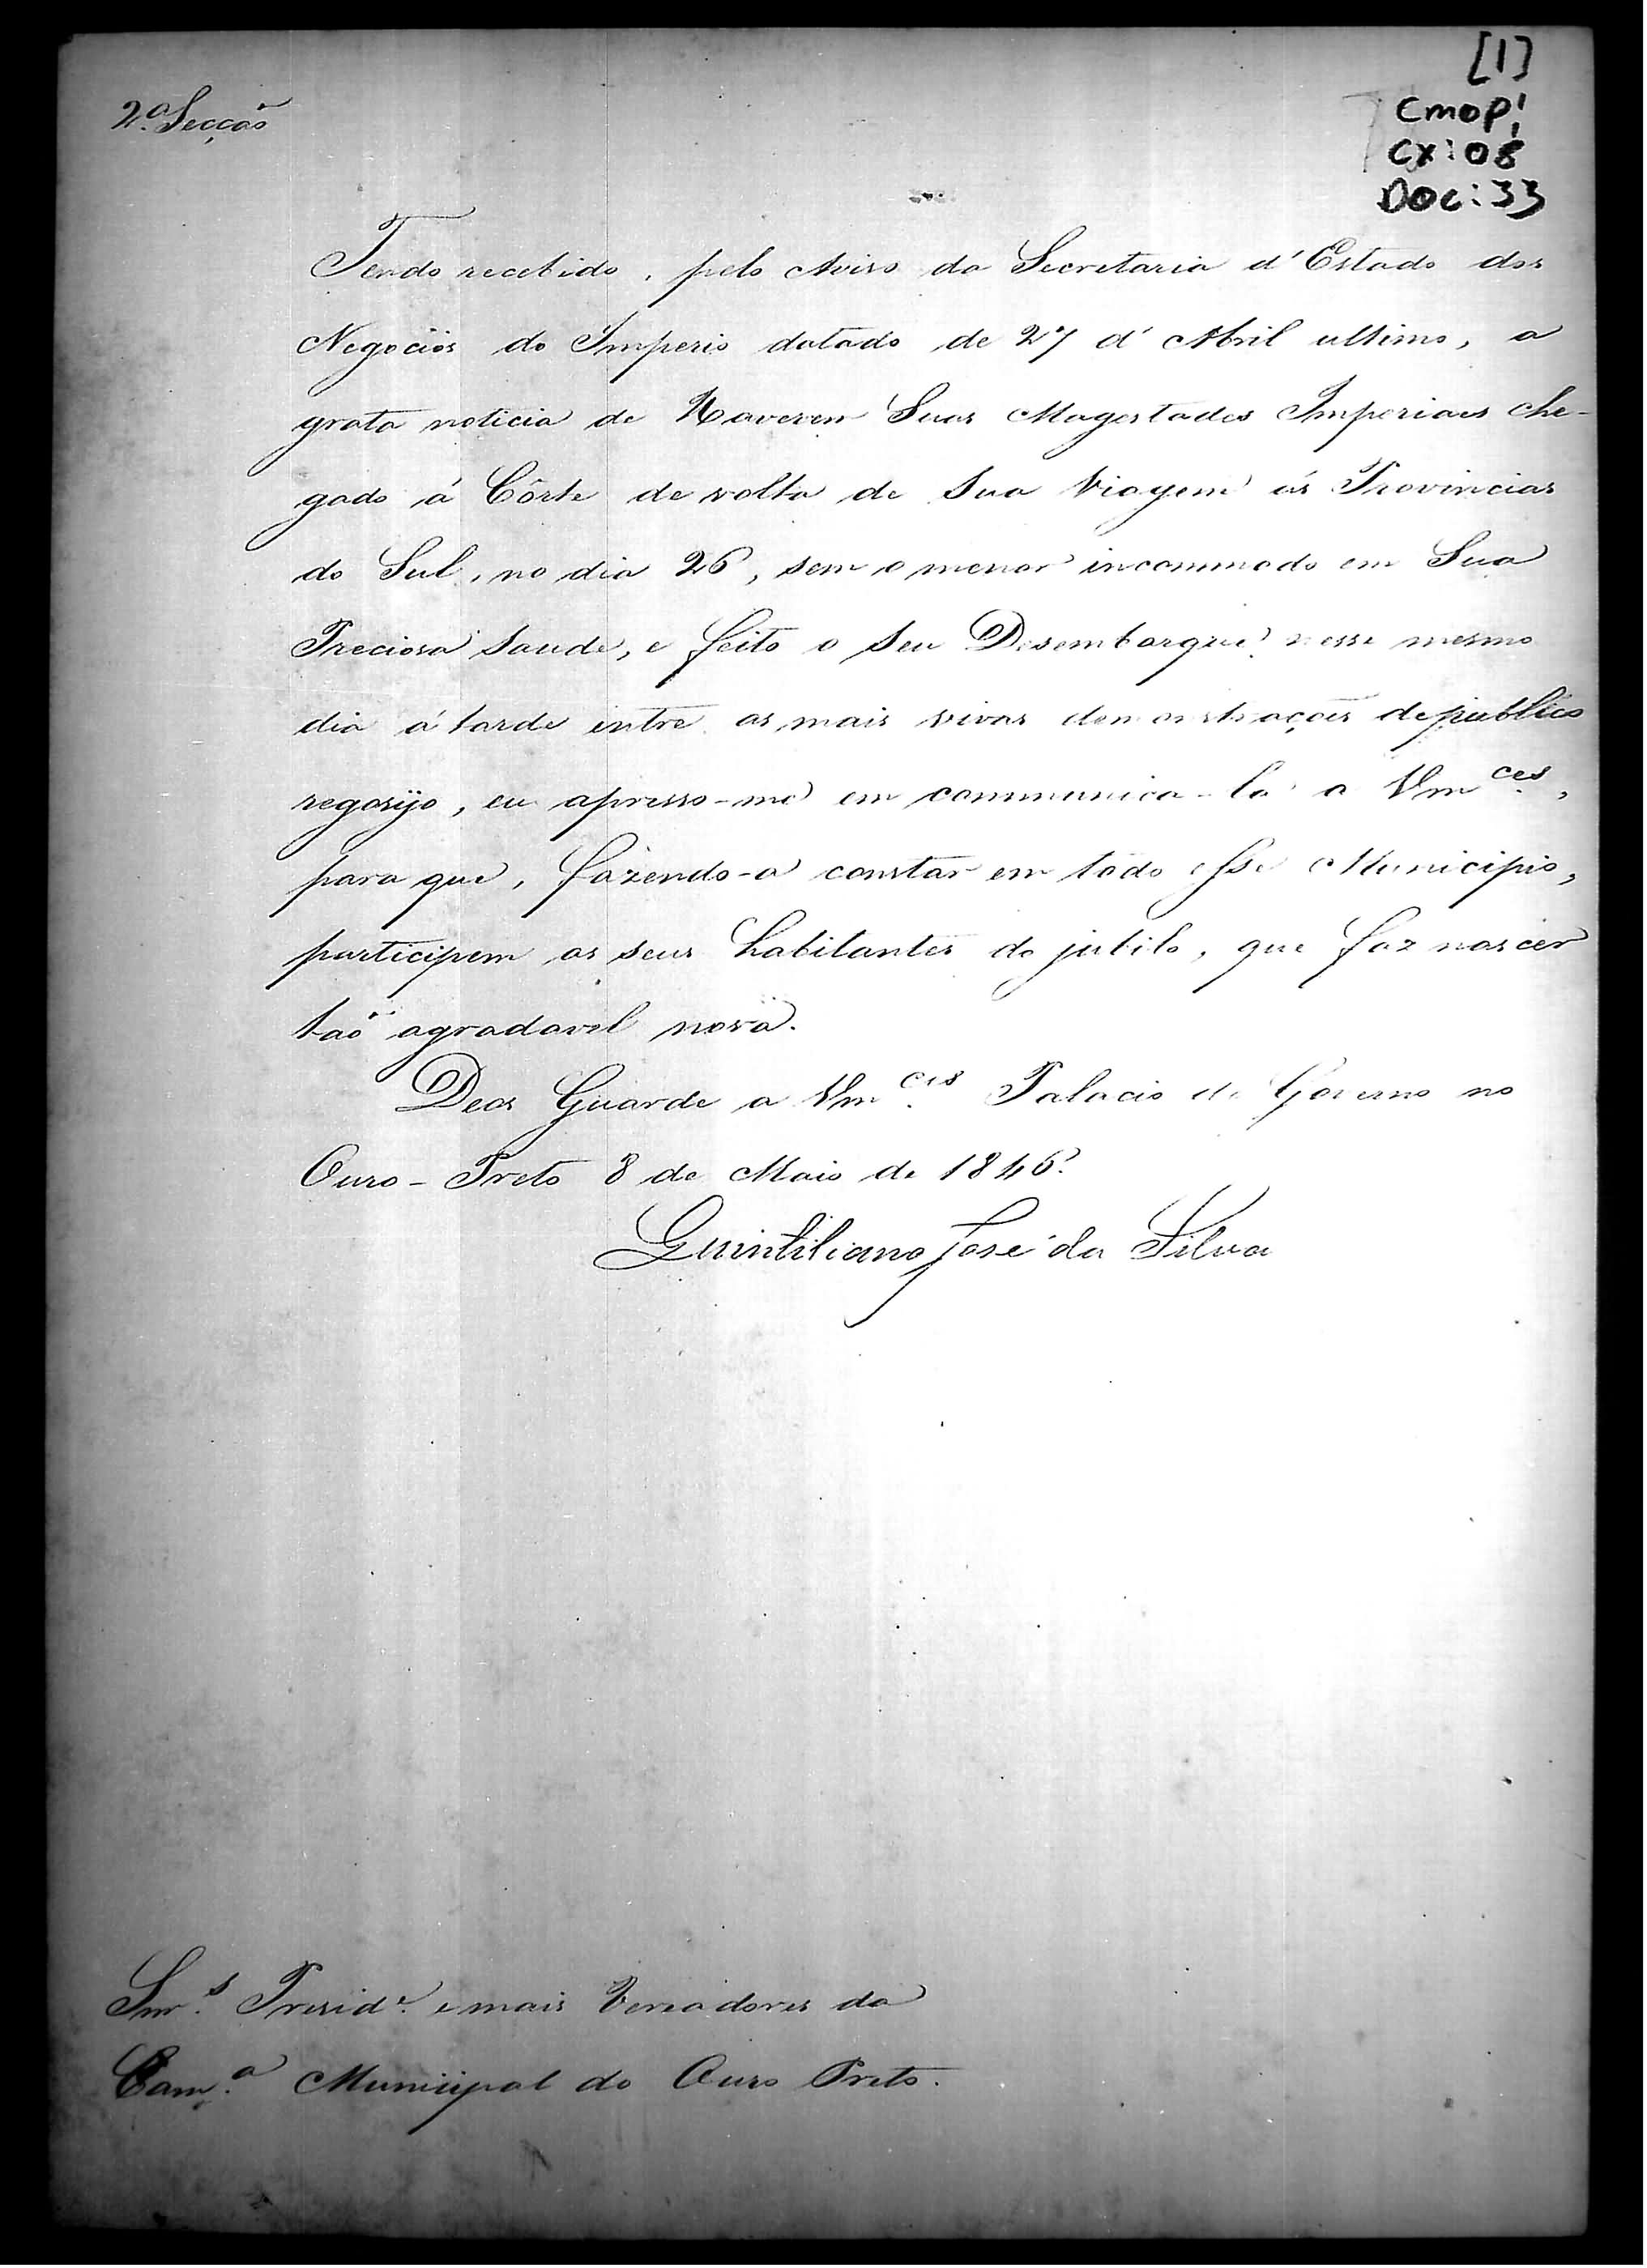 [1]
CMOP!
CX: 08
DOC: 33
2.ª Secçaõ
Tendo recebido, pelo Aviso da Secretaria d'Estado dos
Negocios do Imperio datado de 27 d'Abril ultimo, a
grata noticia de Haverem Suas Magestades Imperiaes che-
gado á Côrte de volta de Sua Viagem ás Provincias
do Sul, no dia 26, sem o menor incommodo em Sua
Preciosa Saude, e feito o Seu Desembarque nesse mesmo
dia á tarde entre as mais vivas demonstraçoẽs de publico
regosijo, eu apresso-me em communica-la a Vm.ces,
para que, fazendo-a constar em todo esse Municipio,
participem os seus habitantes do jubilo, que faz nascer
taõ agradavel nova.
Deos Guarde a Vm.ces Palacio do Governo no
Ouro-Preto 8 de Maio de 1846.
Quintiliano José da Silva
Snr.s Presid.e e mais Vereadores da
Cam.a Municipal do Ouro Preto.